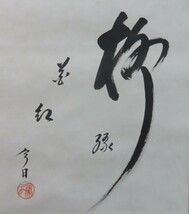 柳緑
花紅
今日